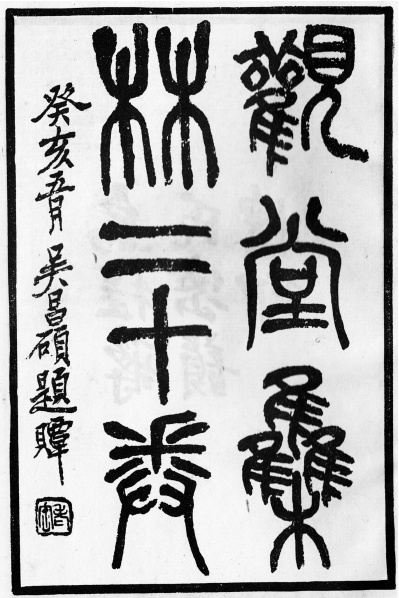 觀堂雧
林二十卷
癸亥五月 吳昌碩題贉